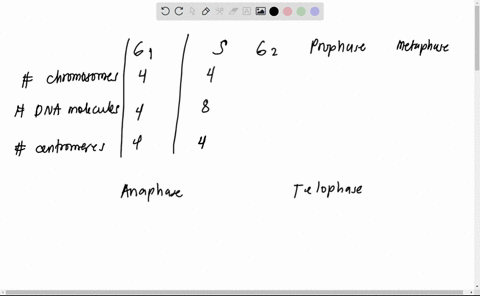 G1 S G2 Prophase Metaphase
# chromosomes 4 4
# DNA molecules 4 8
# centromeres 4 4
Anaphase Telophase